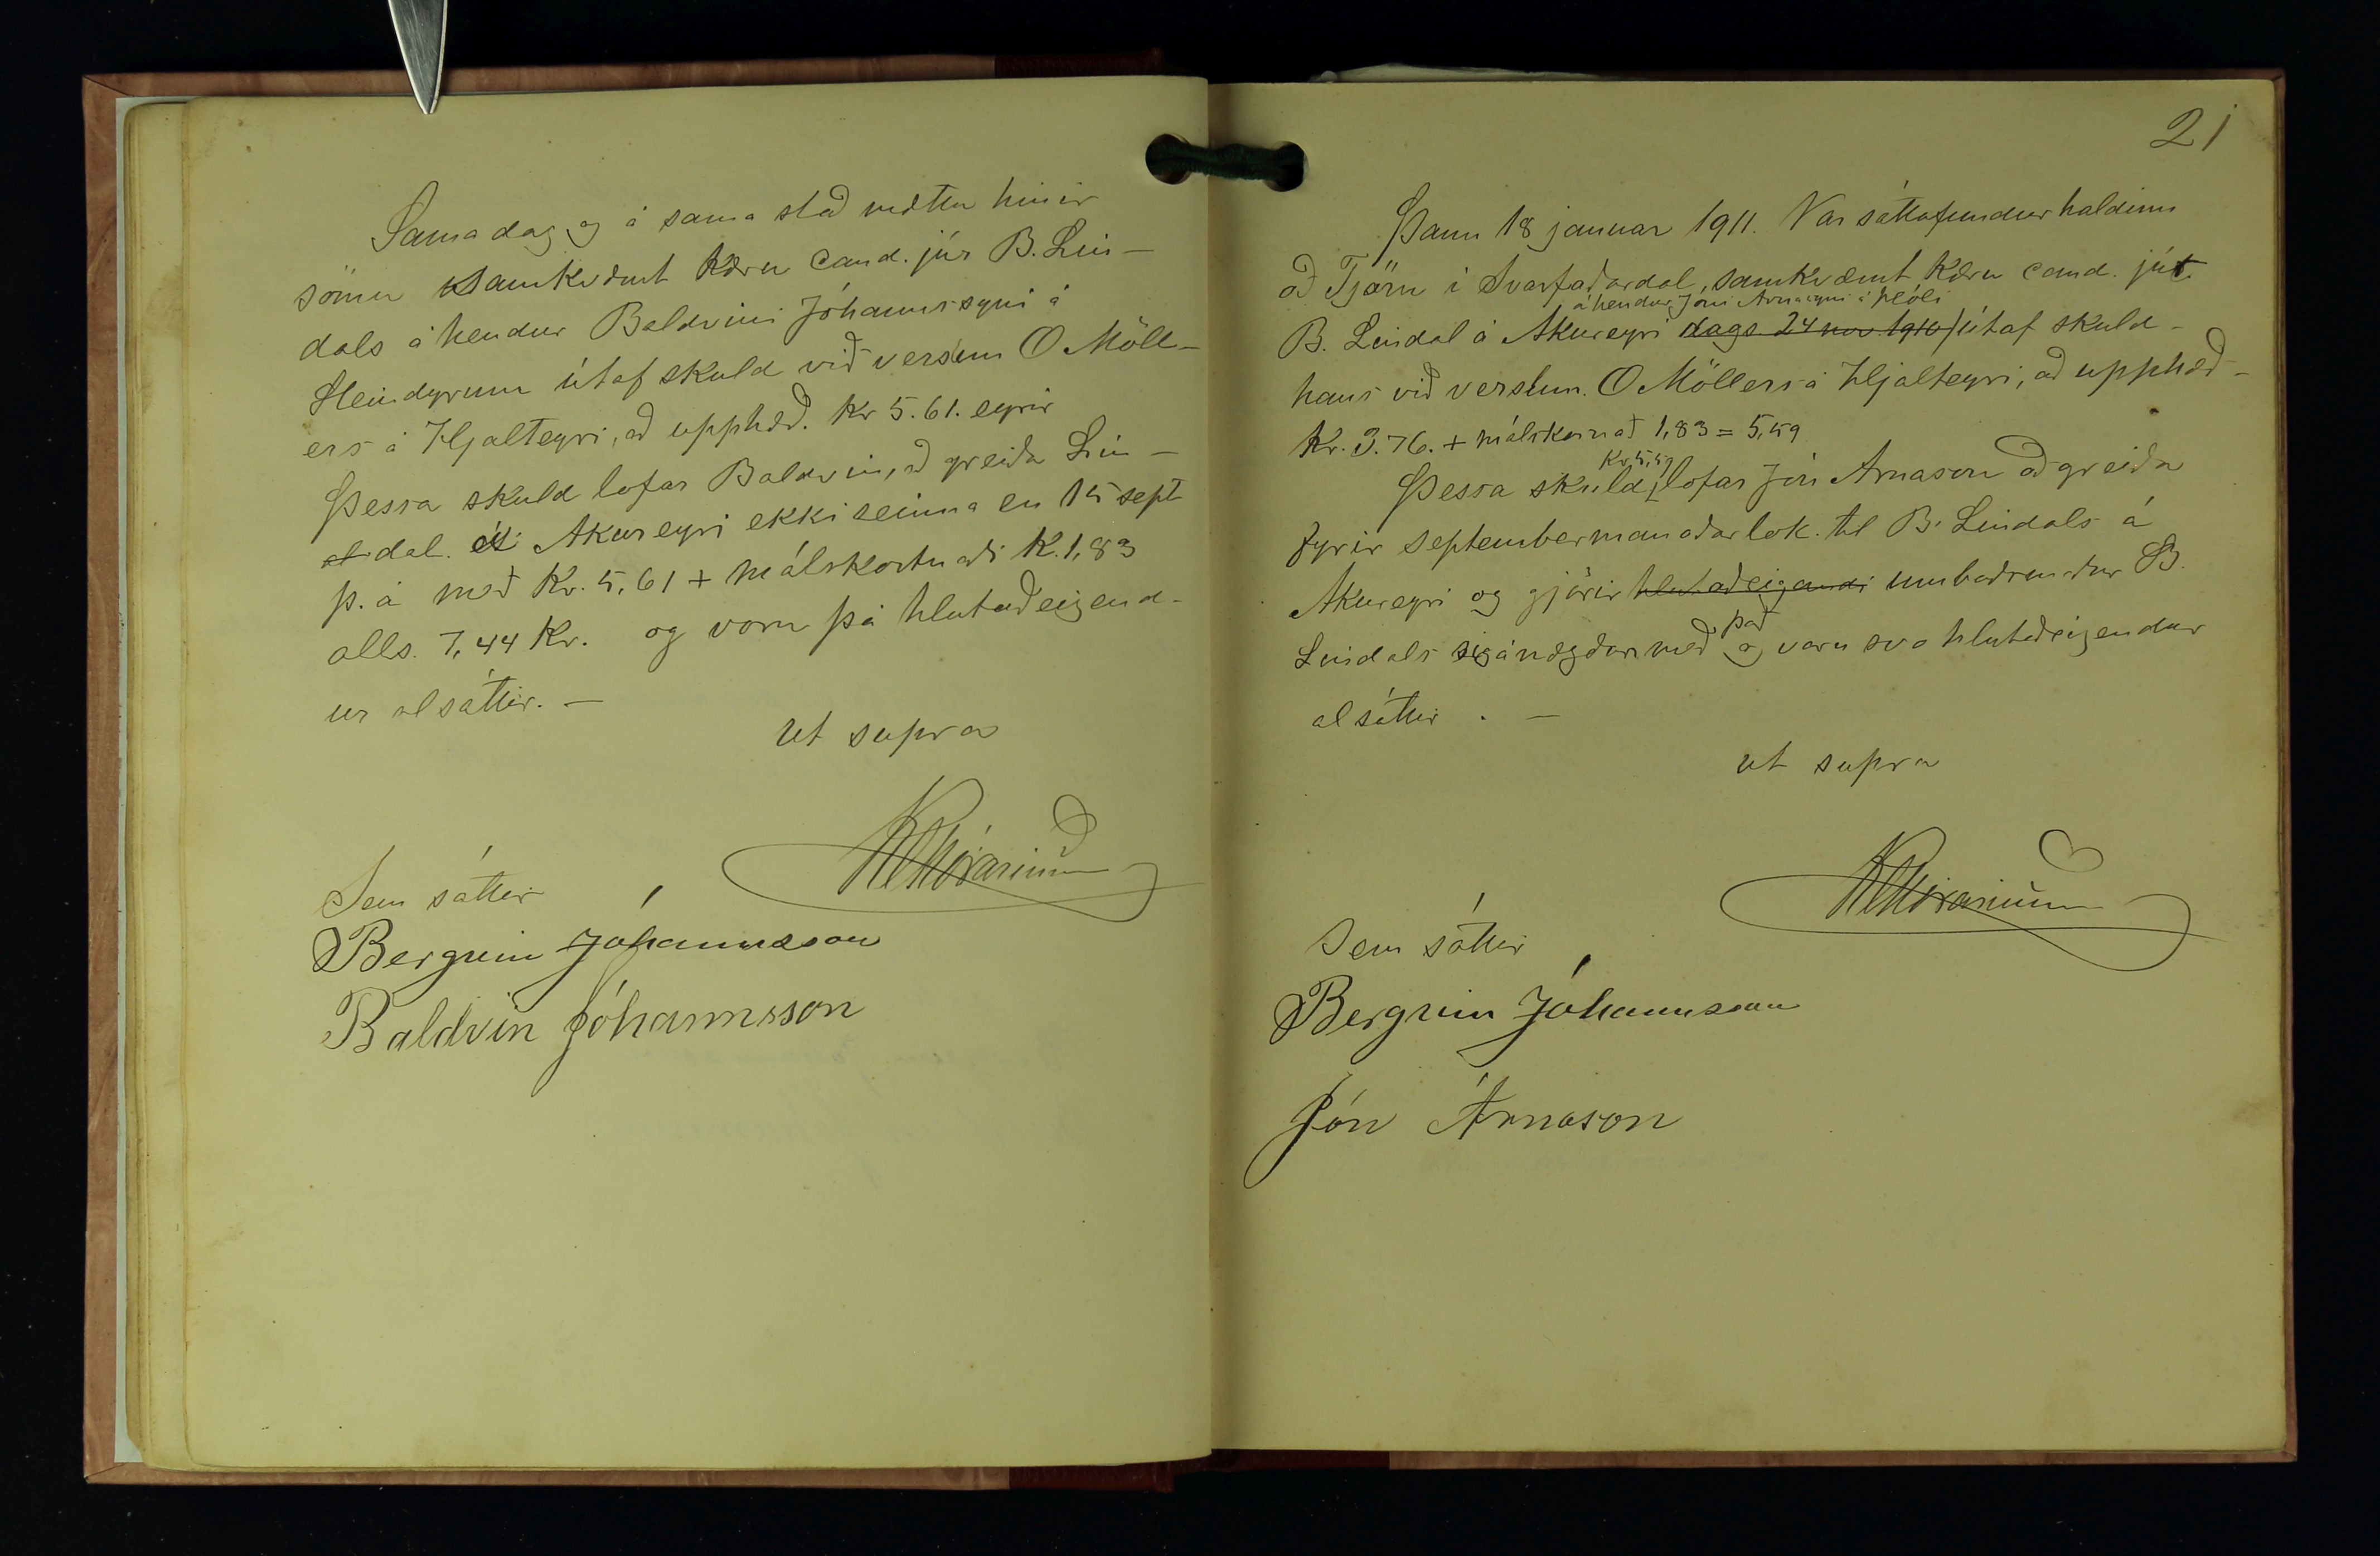 Sama dag og á sama stað mættu hinir
sömu samkvæmt kæru cand. júr B. Lin-
dals á hendur Baldvini Jóhannssyni á
Steindyrum útaf skuld við verslun O Möll-
ers á Hjalteyri, að upphæð. Kr 5.61. eyrir
Þessa skuld lofar Baldvin, að greiða Lin-
dal. á Akureyri ekki seinna en 15 sept
þ. á með Kr. 5,61 + málskostnaði K. 1,83
alls. 7,44 Kr. og voru þá hlutaðeigend-
ur alsáttir. —
ut supra
Sem sáttir
Bergvin Jóhannsson
Baldvin Jóhannsson
21
Þann 18 januar 1911. Var sáttafundur haldinn
að Tjörn í Svarfaðardal, samkvæmt kæru cand. júr.
á hendur Jóni Arnasyni á
B. Lindal á Akureyri dags 24 nov 1910 útaf skuld-
hans við verslun. O Möllers á Hjalteyri, að upphæð-
Kr. 3.76. + málskosnað 1,83 = 5,59
Kr 5,59
Þessa skuld, lofar Jón Arnason að greiða
fyrir septembermanaðarlok. til B. Lindals á
Akureyri og gjörir hlutaðeigandi umboðsmaður B.
það
Lindals sig ánægðan með og voru svo hlutaðeigendur
alsáttir. —
ut supra
Sem sáttir
Bergvin Jóhannsson
Jón Árnason